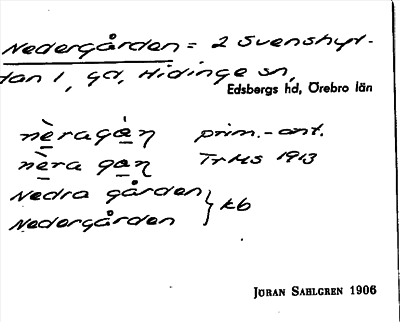 Nedergården = 2 Svenshyt-
tan 1, gd, Hidinge sn,
Edsbergs hd, Örebro län
nèragàn prim.-ant.
nèra gan TrMS 1913
Nedra gården } kb
Nedergården
JÖRAN SAHLGREN 1906